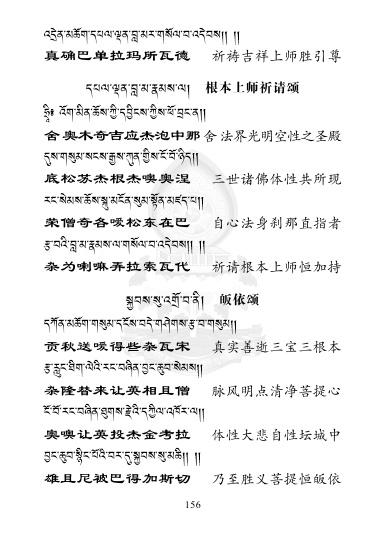 འདྲེན་མཆོག་དཔལ་ལྡན་བླ་མར་གསོལ་བ་འདེབས།། །།
真确巴单拉玛所瓦德 祈祷吉祥上师胜引尊
དཔལ་ལྡན་བླ་མ་རྣམས་ལ། 根本上师祈请颂
ཧྲཱིཿ འོག་མིན་ཆོས་ཀྱི་དབྱིངས་ཀྱིས་ཕོ་བྲང་ན།།
舍 奥木奇吉应杰泡中那 舍 法界光明空性之圣殿
དུས་གསུམ་སངས་རྒྱས་ཀུན་གྱིས་ངོ་བོ་ཉིད།།
底松苏杰根杰噢奥涅 三世诸佛体性共所现
རང་སེམས་ཆོས་སྐུ་མངོན་སུམ་སྟོན་མཛད་པ།།
荣僧奇各嗳松东在巴 自心法身刹那直指者
རྩ་བའི་བླ་མ་རྣམས་ལ་གསོལ་བ་འདེབས།། །།
杂为喇嘛弄拉索瓦代 祈请根本上师恒加持
སྐྱབས་སུ་འགྲོ་བ་ནི། 皈依颂
དཀོན་མཆོག་གསུམ་དངོས་བདེ་གཤེགས་རྩ་བ་གསུམ།།
贡秋送嗳得些杂瓦宋 真实善逝三宝三根本
རྩ་རླུང་ཐིག་ལེའི་རང་བཞིན་བྱང་ཆུབ་སེམས།།
杂隆替来让英相且僧 脉风明点清净菩提心
ངོ་བོ་རང་བཞིན་ཐུགས་རྗེའི་དཀྱིལ་འཁོར་ལ།།
奥噢让英投杰金考拉 体性大悲自性坛城中
བྱང་ཆུབ་སྙིང་པོའི་བར་དུ་སྐྱབས་སུ་མཆི།། །།
雄且尼被巴得加斯切 乃至胜义菩提恒皈依
156